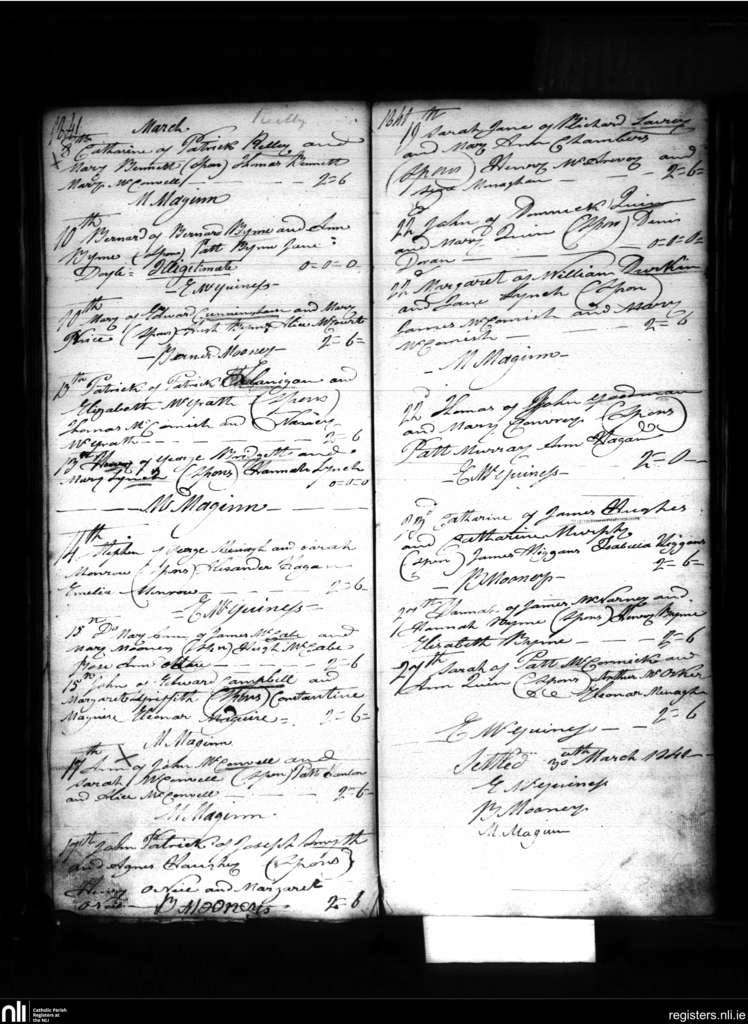 1841 Reilly
March
8th Catharine of Patrick Relley and
Mary Bennett (Spon) Thomas Bennett
Mary McConvell 2=6
M Maginn
10th Bernard of Bernard Byrne and Ann
Byrne (Spon) Patt Byrne Jane
Doyle= Illegitimate 0=0=0
E McGuiness
Mary of Edward Cunningham and Mary
Price (Spons) Hugh Byrne Alice McCourt
Bernd Mooney 2=6
13th Patrick of Patrick and
Elizabeth McGrath (Spons)
Thomas McCornish and
McGrath 2=6
13th of George Bridgett and
Mary Lynch (Spons) Hannah Lynch
0=0=0
M Maginn
14th Stephen of George and Sarah
Monrow (Spons) Alexander Hagan
Emelia Monrow 2=6
E McGuiness
15th Do Mary Ann of James McCabe and
Mary Mooney (Spon) Hugh McCabe
Rose Ann 2=6
15th John of Edward Campbell and
Margaret Griffith (Spons) Constantine
Magness Eleonar Maguire 2=6
M Maginn
17th X Ann of John McConvell and
Sarah McConvell (Spon) Patt Hanlon
and Alice McConvell 2=6
M. Maginn
John Patrick of Joseph Smyth
and Agnes Haughey (Spons)
Henry and Margaret
B Mooney 2=6
1841
19th Sarah Jane of Richard Lavrey
and Mary Ann Chambers
(Spons) Henry McIrevey and
Monaghan 2=6
22 John of Dominick Quinn
and Mary Quinn (Spon) Denis
Doran 0=0=0
22d Margaret of William Durkin
and Jane Lynch (Spon)
James McCornish and Mary
McCornish 2=6
M Maginn
22d Thomas of John Goodman
and Mary Convrey (Spons)
Patt Murray Ann Hagan
E McGuiness 2=0
Catharine of James Hughes
and Catharine Murphy
(Spon) James Higgans Isabella Higgans
B Mooney 2=6
Hannah of James McVarney and
Hannah Payne (Spons) Henry Byrne
Elizabeth Byrne 2=6
27th Sarah of Patt McCormick and
Ann Quin (Spons) Arthur McOrker
&c Eleonar Menagh
2=6
E McGuiness
Settled 30th March 1841
E McGuiness
B Mooney
M Maginn
nli Catholic Parish Registers at the NLI
registers.nli.ie